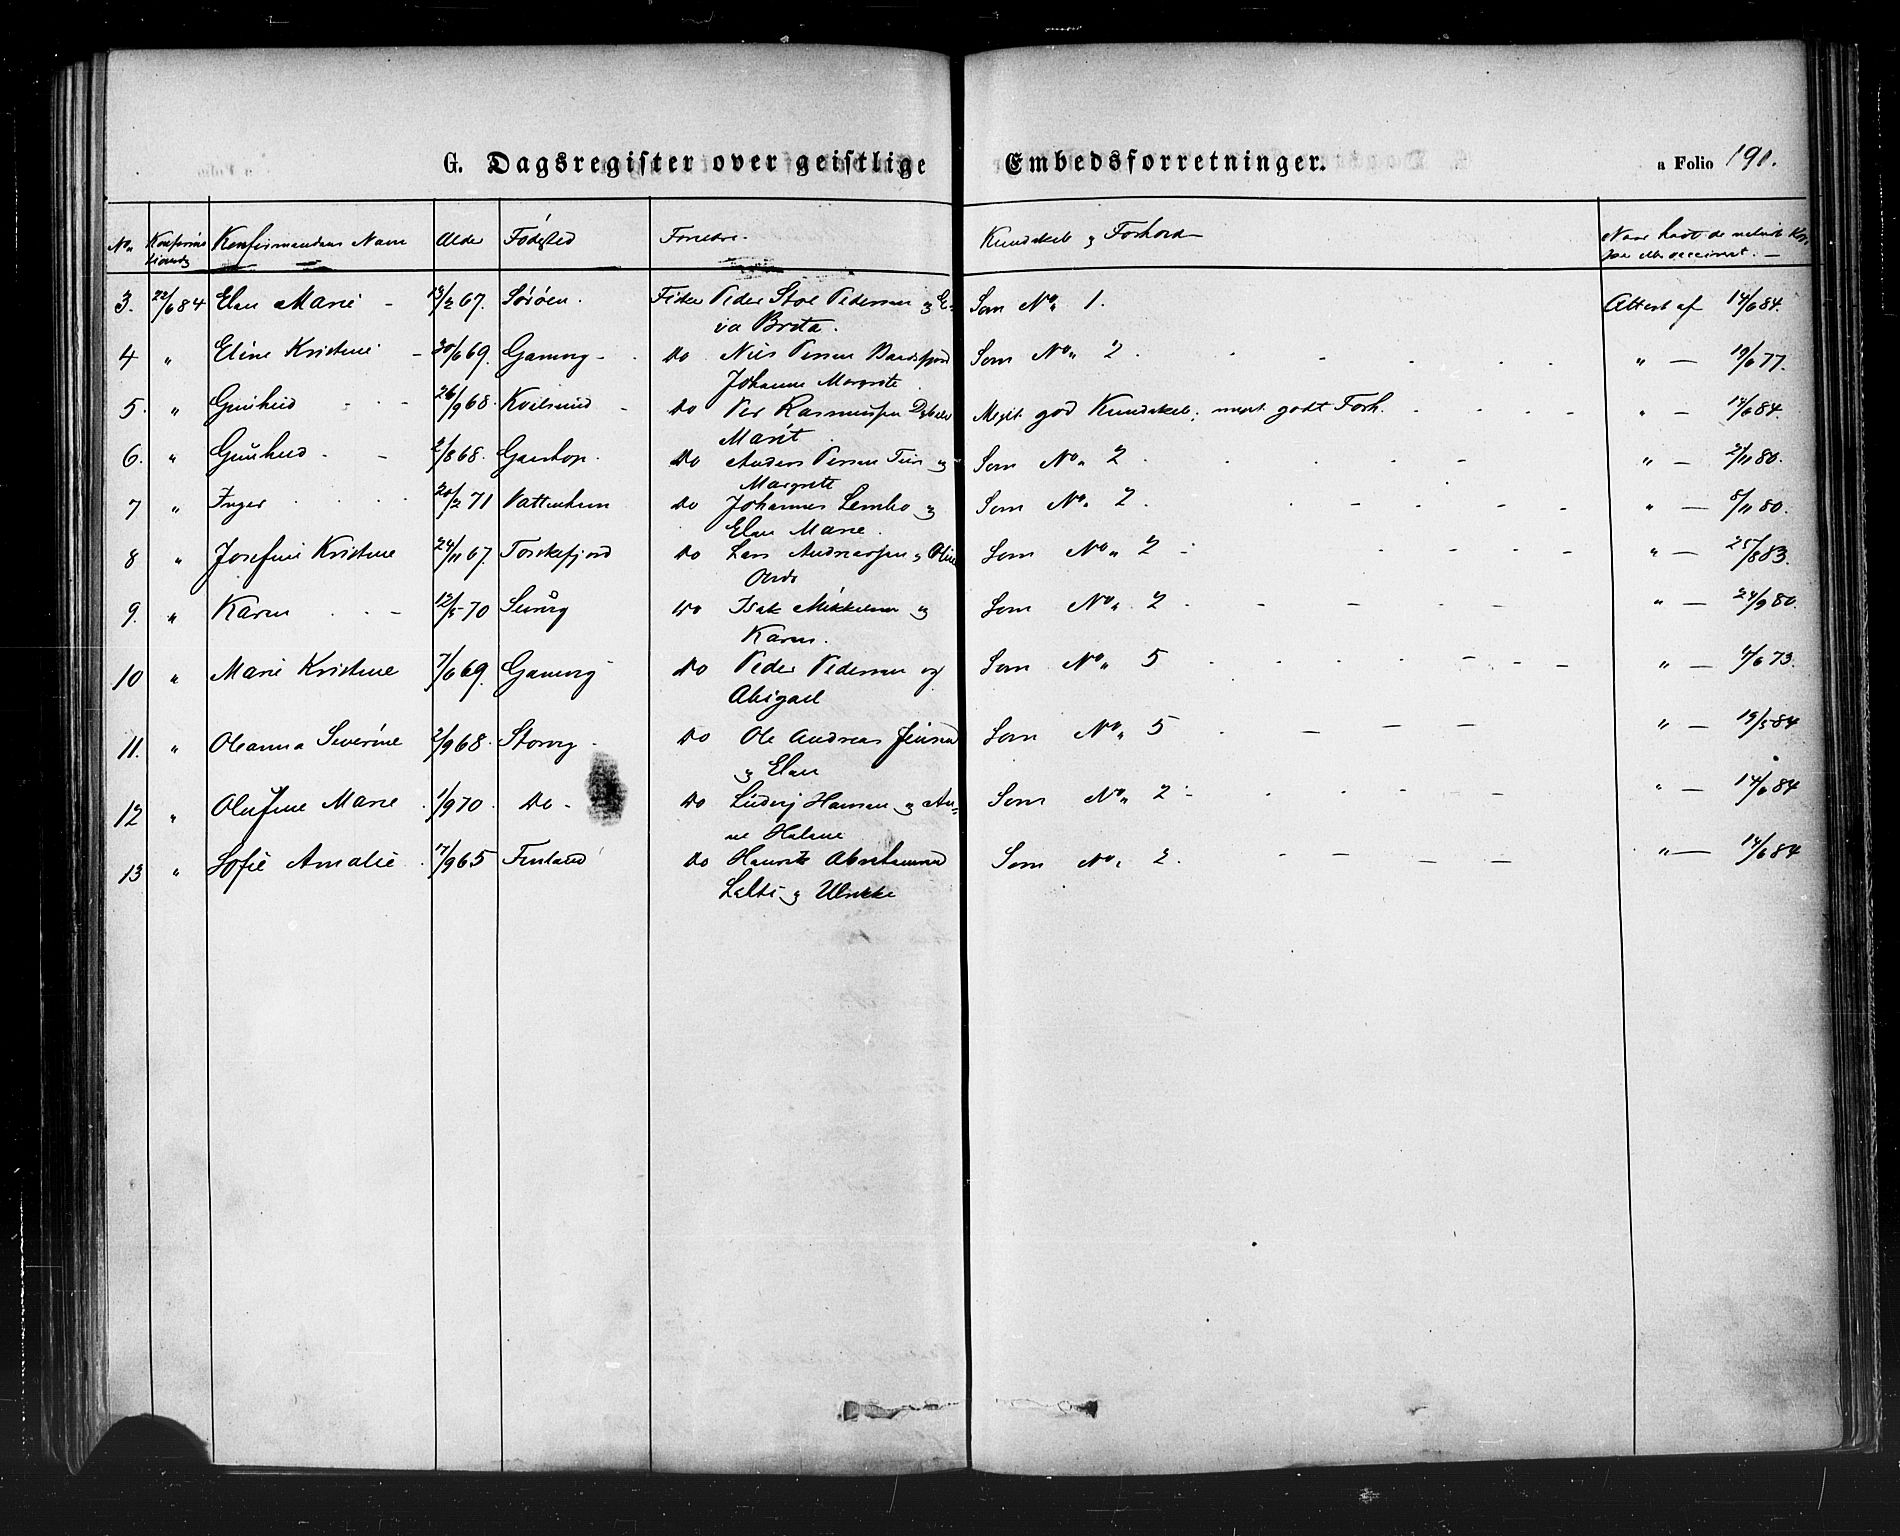 G. Dagsregister over geistlige Embedsforretninger. a Folio 190.
No. Konfirmandens Navn Alder Fødested Forældre. Kundskab og Forhold
3. 22/6 84 Elen Marie - 13/2 67. Sørøen. Fisker Peder Pedersen og E- Som No. 1. Attest af 14/6 84.
va Brita.
4 " Eline Kristine - 30/6 69. Gamvig - do Nils Persen Som No. 2 " — 19/6 77.
Johanne Margrete
5. " Gunhild 26/9 68. Kvilsund - do Per Rasmussen Meget god Kundskab; meget godt Forh. " - 14/6 84.
Marit
6. " Gunhild 2/8 68. Do Anders Persen og Som No. 2 " — 2/11 80.
Margrete
7 " Inger 20/2 71 do Johannes Lembo og Som No. 2. " — 8/11 80.
Elen Marie.
8 " Josefine Kristine 24/11 67. Torskefjord do Lars Andreassen og Som No. 2 " — 25/8 83.
9. " Karen - 12/5 70 do Isak Mikkelsen og Som No. 2 " — 24/9 80.
Karen.
10 " Marie Kristine 7/6 69. Gamvig do Peder Pedersen og Som No. 5 " — 4/6 73.
Abigael
11. " Oleanna Severine 2/9 68. Storvig do Ole Andreas Jensen Som No. 5 " — 19/5 84
og Elen
12 " Olufine Marie 1/9 70. Do - Do Ludvig Hansen og An- Som No. 2 " — 14/6 84
ne Helene
13 " Sofie Amalie 17/9 65 Finland do Som No. 2. " — 14/6 84
og Ulrikke